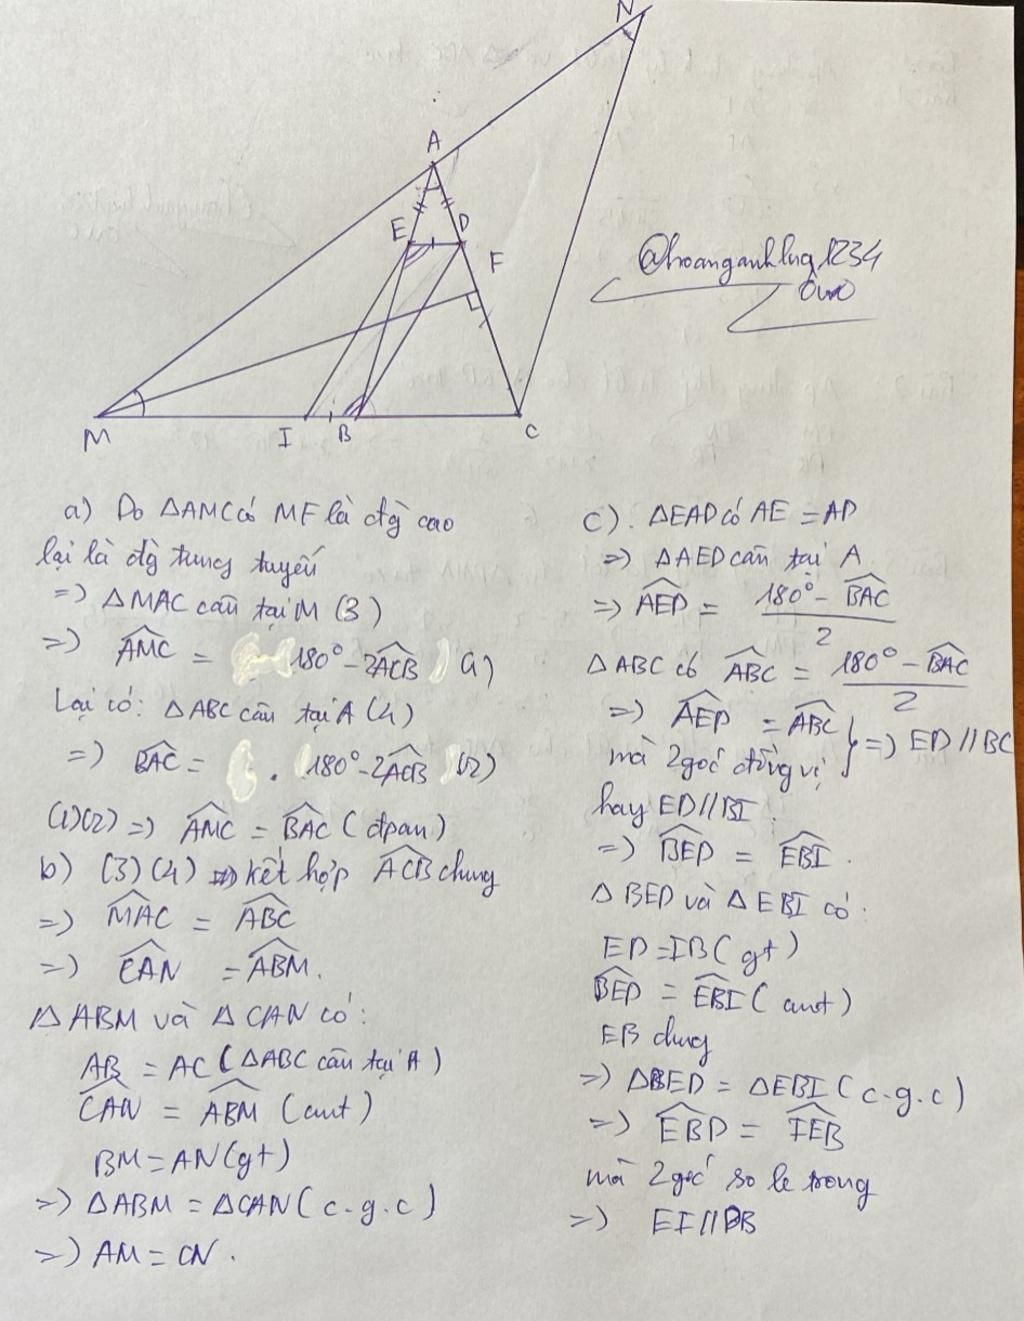 N
A
E
D
F
@hoanganhlng1234
M
I
B
C
a) Do △AMC có MF là đg cao
lại là đg tung tuyến
=> △MAC cân tại M (3)
=> \widehat{AMC} = 180° - 2\widehat{ACB} (1)
Lại có: △ABC cân tại A (4)
=> \widehat{BAC} = 180° - 2\widehat{ACB} (2)
(1)(2) => \widehat{AMC} = \widehat{BAC} (đpcm)
b) (3)(4) => kết hợp \widehat{ACB} chung
=> \widehat{MAC} = \widehat{ABC}
=> \widehat{CAN} = \widehat{ABM}.
△ABM và △CAN có:
AB = AC (△ABC cân tại A)
\widehat{CAN} = \widehat{ABM} (cmt)
BM = AN (gt)
=> △ABM = △CAN (c.g.c)
=> AM = CN.
c). △EAD có AE = AD
=> △AED cân tại A
=> \widehat{AED} = \frac{180° - \widehat{BAC}}{2}
△ABC có \widehat{ABC} = \frac{180° - \widehat{BAC}}{2}
=> \widehat{AED} = \widehat{ABC}
mà 2 góc đồng vị } => ED // BC
hay ED // BI.
=> \widehat{BED} = \widehat{EBI}.
△BED và △EBI có:
ED = IB (gt)
\widehat{BED} = \widehat{EBI} (cmt)
EB chung
=> △BED = △EBI (c.g.c)
=> \widehat{EBD} = \widehat{IEB}
mà 2 góc so le trong
=> EI // DB